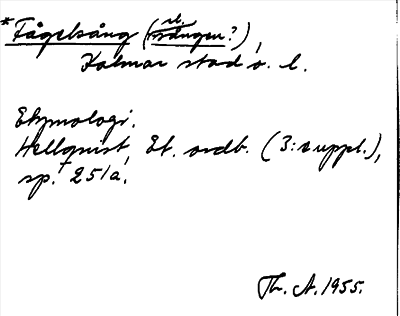 *Fågelsång (el. -sången?),
Kalmar stad o. l.
Etymologi.
Hellquist, Et. ordb. (3:e uppl.),
sp. 251a.
Th. A. 1955.